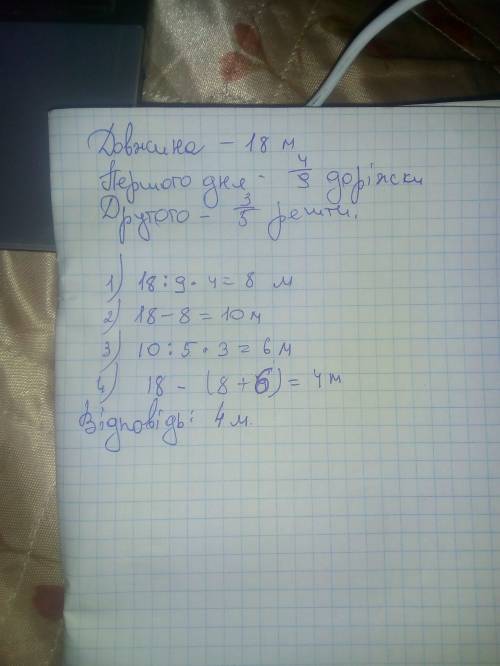 Довжина - 18 м
Першого дня - 4/9 доріжки
Другого - 3/5 решти.
1) 18:9·4=8 м
2) 18-8=10м
3) 10:5·3=6м
4) 18-(8+6)=4м
Відповідь: 4м.